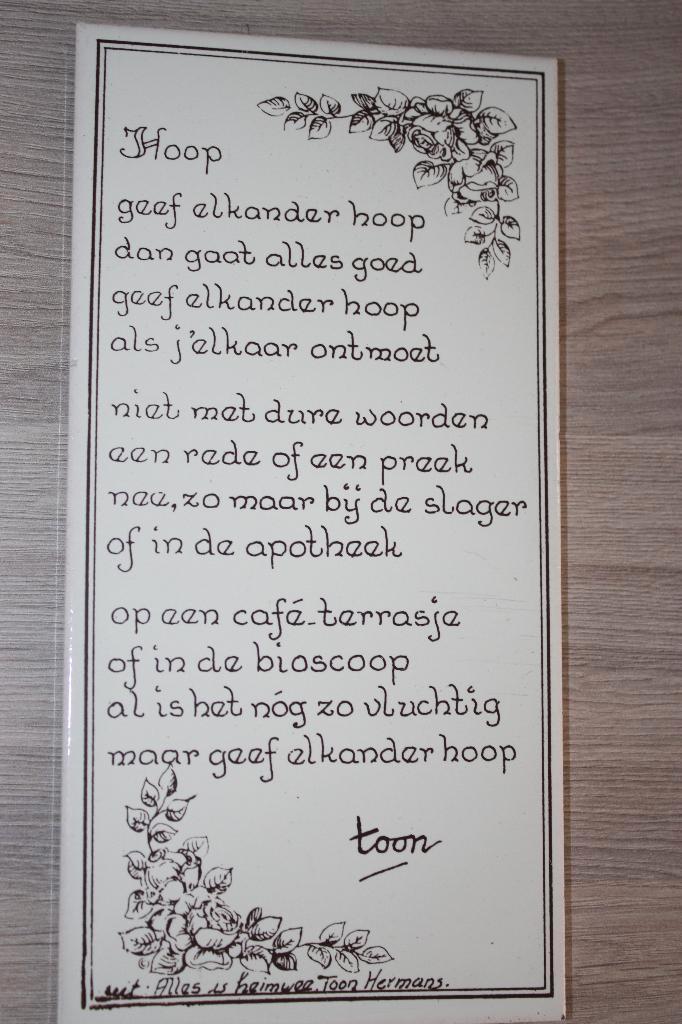 Hoop
geef elkander hoop
dan gaat alles goed
geef elkander hoop
als j'elkaar ontmoet
niet met dure woorden
een rede of een preek
nee, zo maar bij de slager
of in de apotheek
op een café-terrasje
of in de bioscoop
al is het nóg zo vluchtig
maar geef elkander hoop
toon
uit: Alles is heimwee. Toon Hermans.